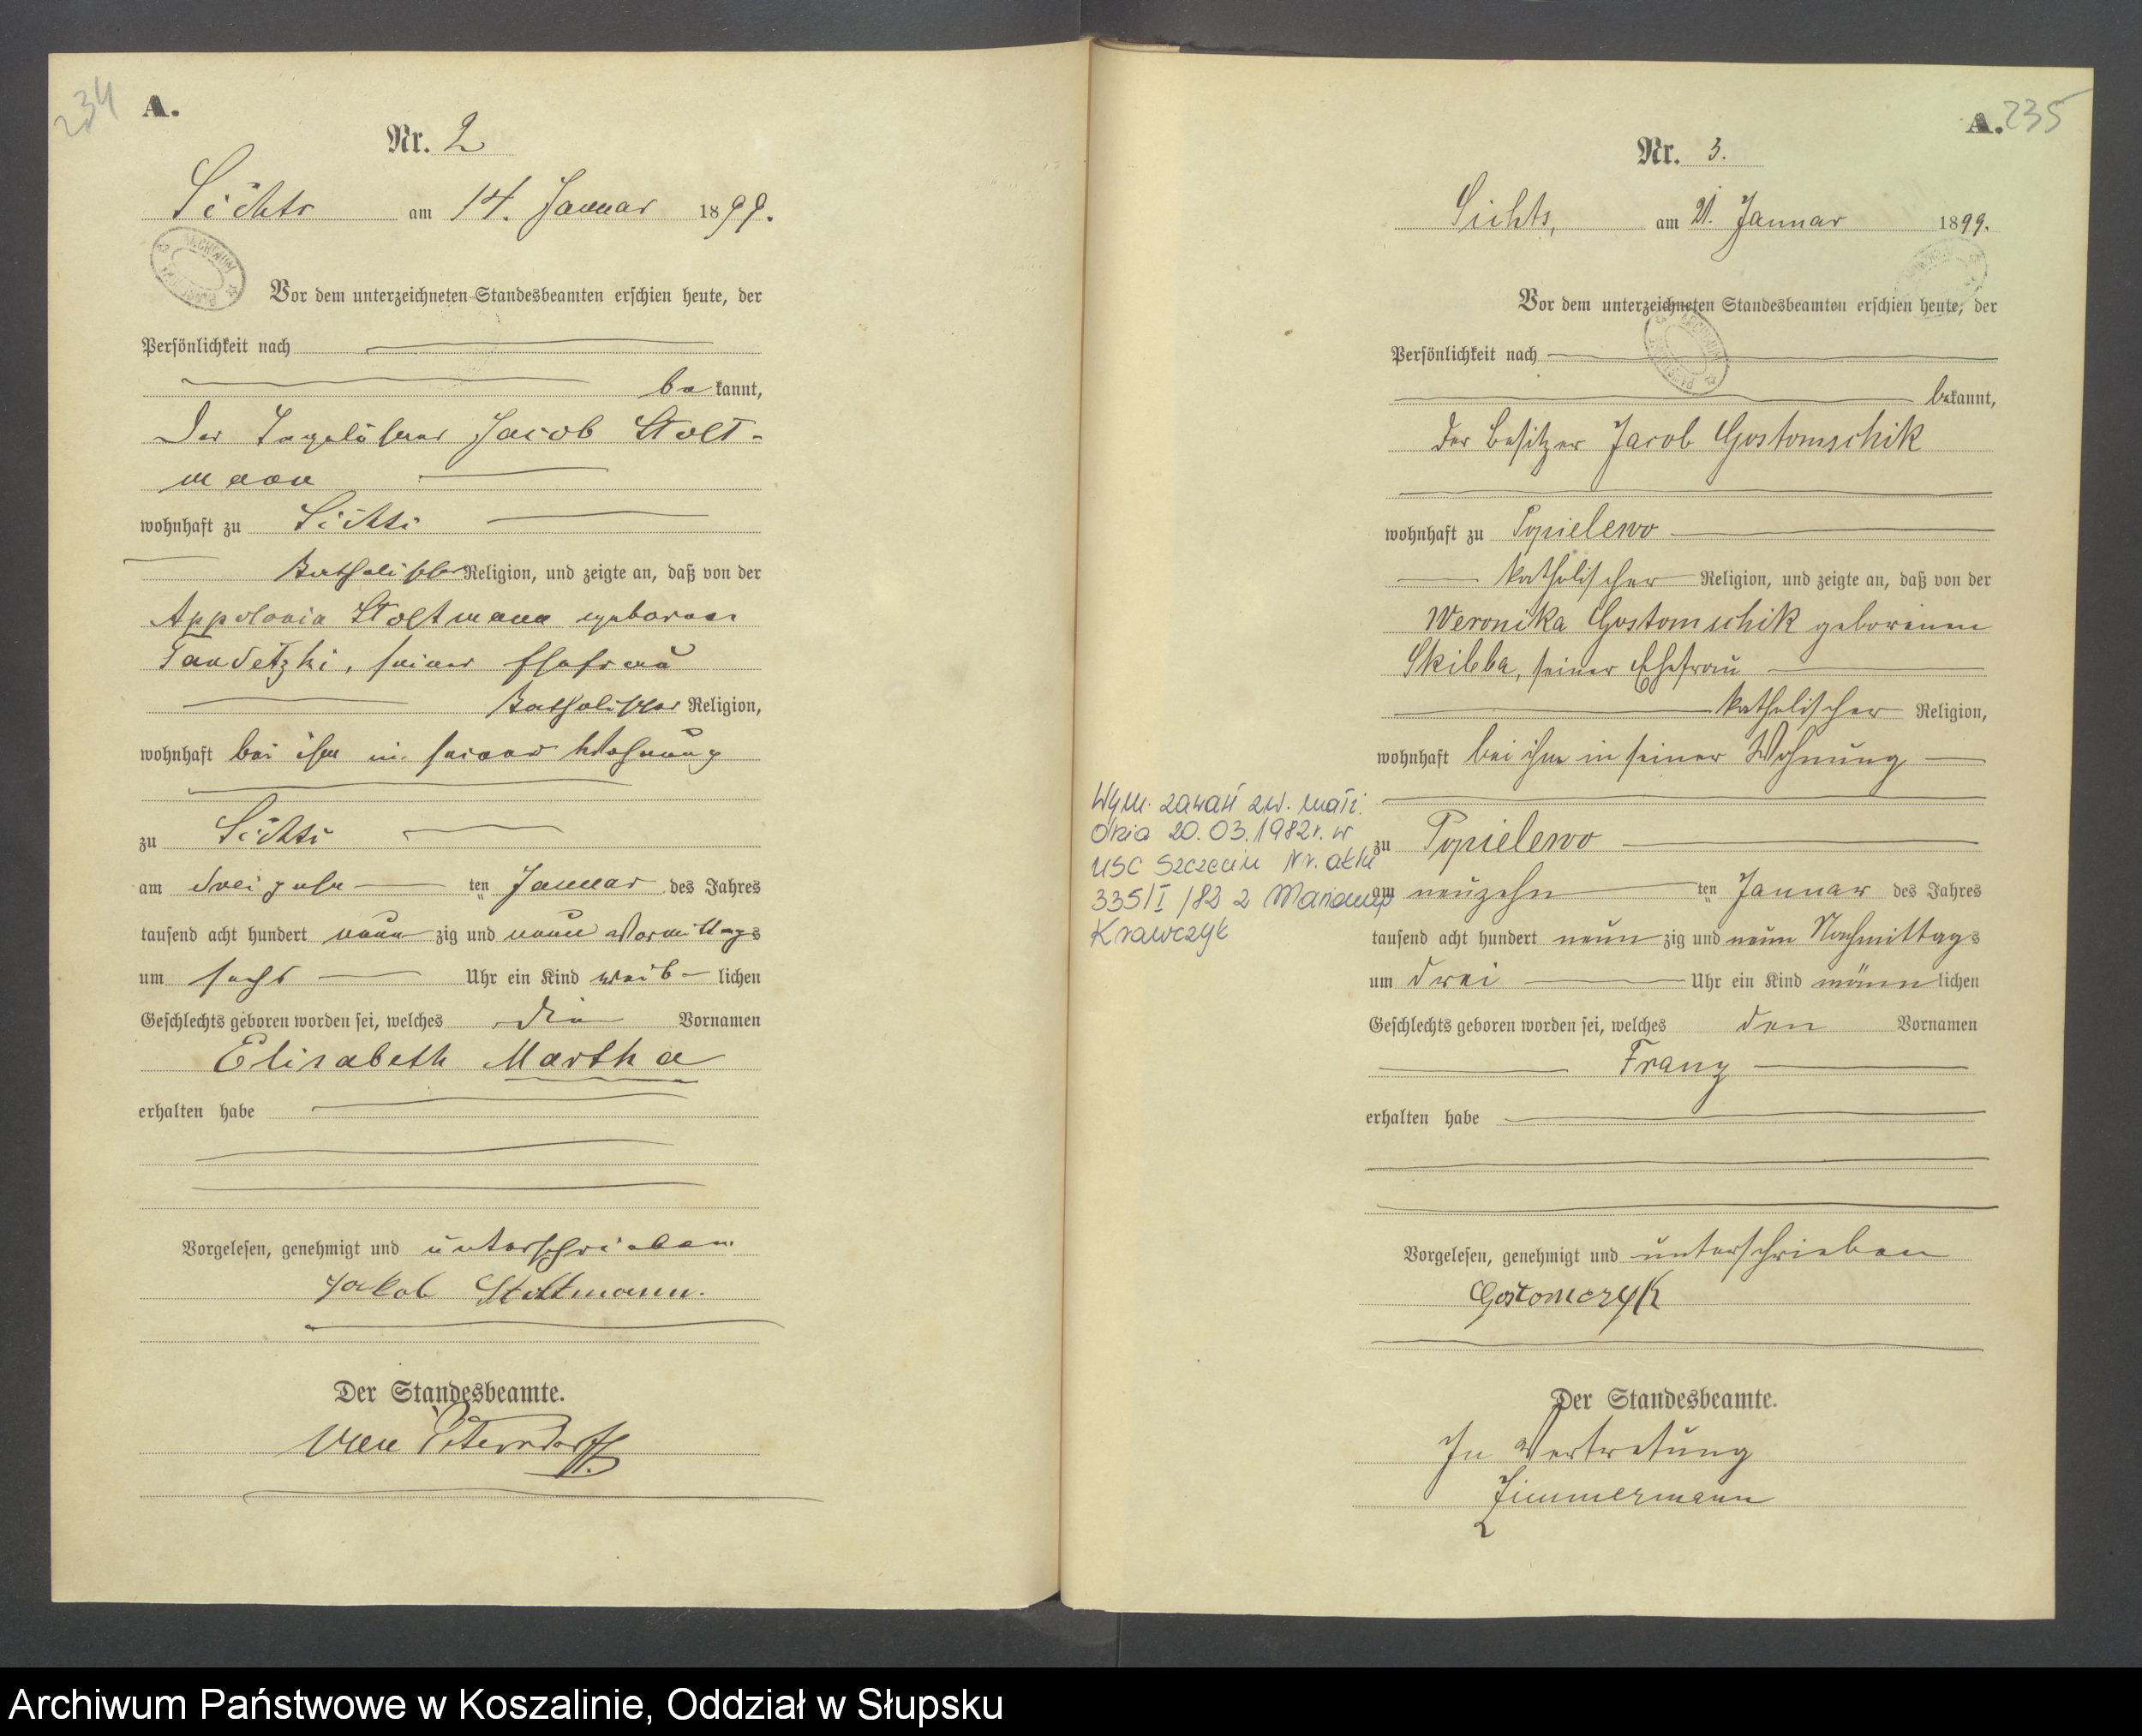 234
A.
Nr. 2
Sichts am 14. Januar 1899.
Vor dem unterzeichneten Standesbeamten erschien heute, der
Persönlichkeit nach
bekannt,
der Tagelöhner Jacob Stolt-
mann
wohnhaft zu Sichts
katholischer Religion, und zeigte an, daß von der
Appolonia Stoltmann geboren
seiner Ehefrau
katholischer Religion,
wohnhaft bei ihm in seiner Wohnung
zu Sichts
am dreizehn ten Januar des Jahres
tausend acht hundert neun zig und neun Vormittags
um sechs Uhr ein Kind weib lichen
Geschlechts geboren worden sei, welches die Vornamen
Elisabeth Martha
erhalten habe
Vorgelesen, genehmigt und unterschrieben
Jakob Stoltmann.
Der Standesbeamte.
A. 235
Nr. 3.
Sichts, am 21. Januar 1899.
Vor dem unterzeichneten Standesbeamten erschien heute, der
Persönlichkeit nach
bekannt,
der Besitzer Jacob Gostomschik
wohnhaft zu Popielewo
katholischer Religion, und zeigte an, daß von der
Weronika Gostomschik geborenen
Skibba, seiner Ehefrau
katholischer Religion,
wohnhaft bei ihm in seiner Wohnung
zu Popielewo
am neunzehn ten Januar des Jahres
tausend acht hundert neun zig und neun Nachmittags
um drei Uhr ein Kind männ lichen
Geschlechts geboren worden sei, welches den Vornamen
Franz
erhalten habe
Vorgelesen, genehmigt und unterschrieben
Gostomczyk
Der Standesbeamte.
In Vertretung
Zimmermann
Wym. zawarł zw. małż.
dnia 20.03.1982r. w
USC Szczecin Nr. aktu
335/I/82 z Marianną
Krawczyk
Archiwum Państwowe w Koszalinie, Oddział w Słupsku